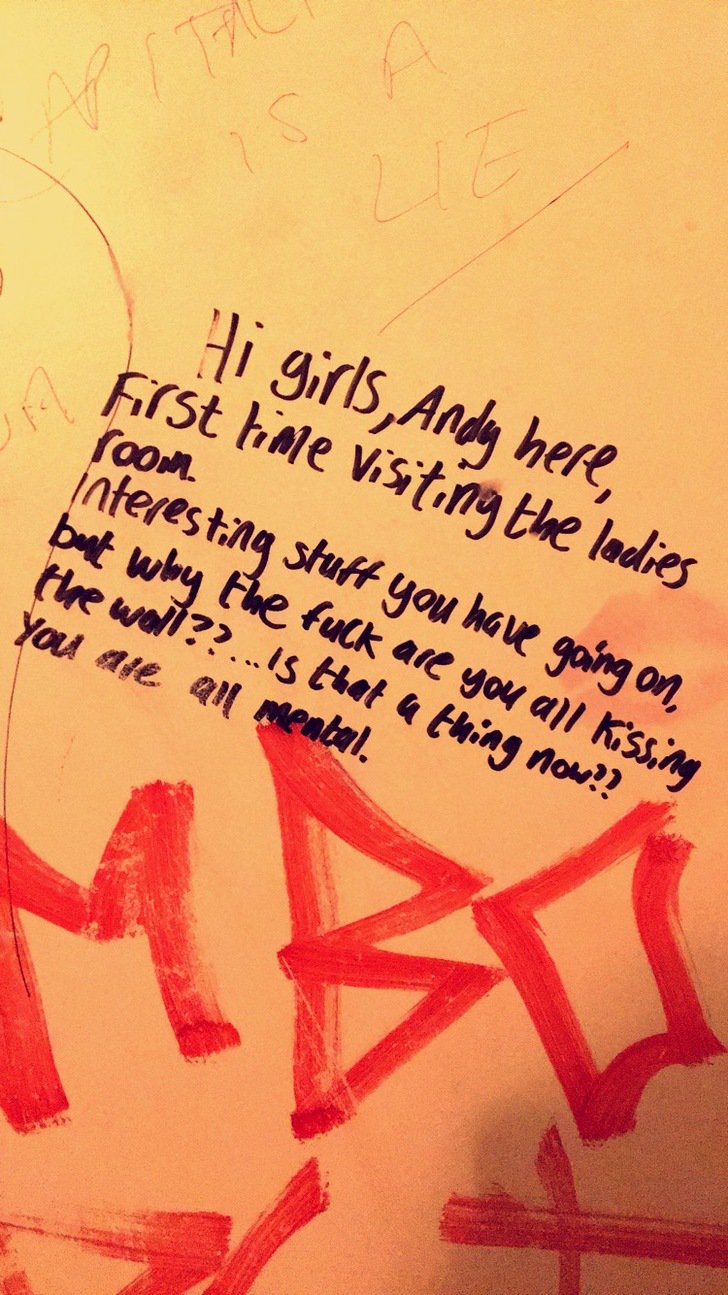 APITAL
IS A
LIE
Hi girls, Andy here,
First time visiting the ladies
room.
Interesting stuff you have going on,
but why the fuck are you all kissing
the wall??...is that a thing now??
you are all mental.
MBO